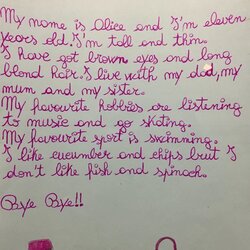 My name is Alice and I'm eleven
years old. I'm tall and thin.
I have got brown eyes and long
blond hair. I live with my dad, my
mum and my sister.
My favourite hobbies are listening
to music and go skating.
My favourite sport is swimming.
I like cucumber and chips but I
don't like fish and spinach.
Bye Bye!!